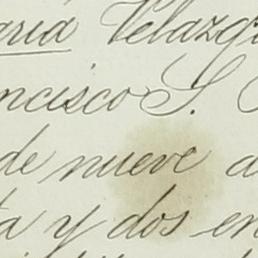 aria Velazq
ncisco S.
de nueve a
ta y dos en